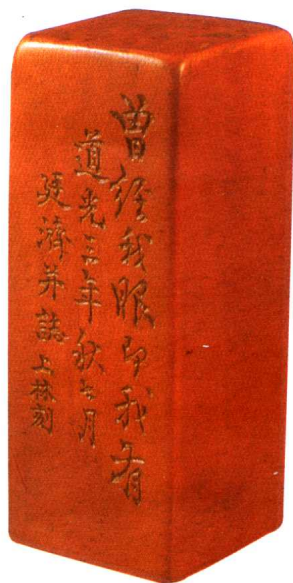 曾经我眼即我有
道光三年秋七月
廷济并誌上林刻